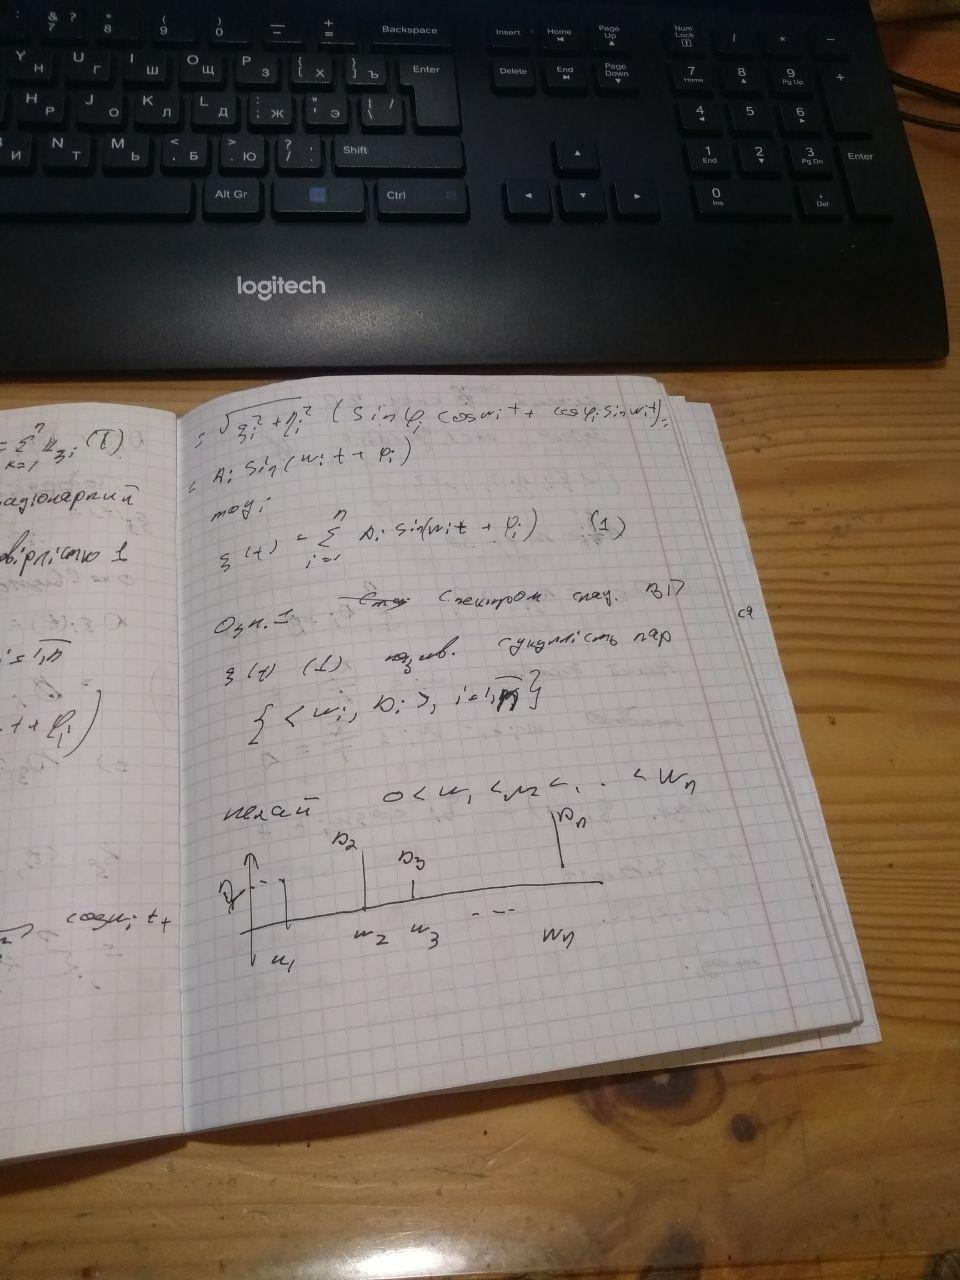 & 7 ?
* 8
( 9
) 0
— -
+ =
Backspace
Insert
Home
Page Up
Num Lock
/
*
−
Y Н
U Г
I Ш
O Щ
P З
{ [ Х
} ] Ъ
Enter
Delete
End
Page Down
7 Home
8
9 Pg Up
+
H Р
J О
K Л
L Д
: ; Ж
" ' Э
| / \
4
5
6
И
N Т
M Ь
< , Б
> . Ю
? / : .
Shift
1 End
2
3 Pg Dn
Enter
Alt Gr
Ctrl
0 Ins
, Del
logitech
= Σ k=1 n (τ)
вірністю 1
cos wᵢ t +
= √(ξᵢ² + ηᵢ²) (sin φᵢ cos wᵢ t + cos φᵢ sin wᵢ t) =
= Aᵢ sin(wᵢ t + φᵢ)
тоді
ξ(t) = Σ i=1 n Aᵢ sin(wᵢ t + φᵢ) (1)
Озн. 1 Спектром стац. ВП
ξ(t) (1) назив. сукупність пар
{ < wᵢ, Dᵢ >, i = 1, n }
нехай 0 < w₁ < w₂ < . . < wₙ
D₂ D₃ Dₙ
w₁ w₂ w₃ - - - wₙ